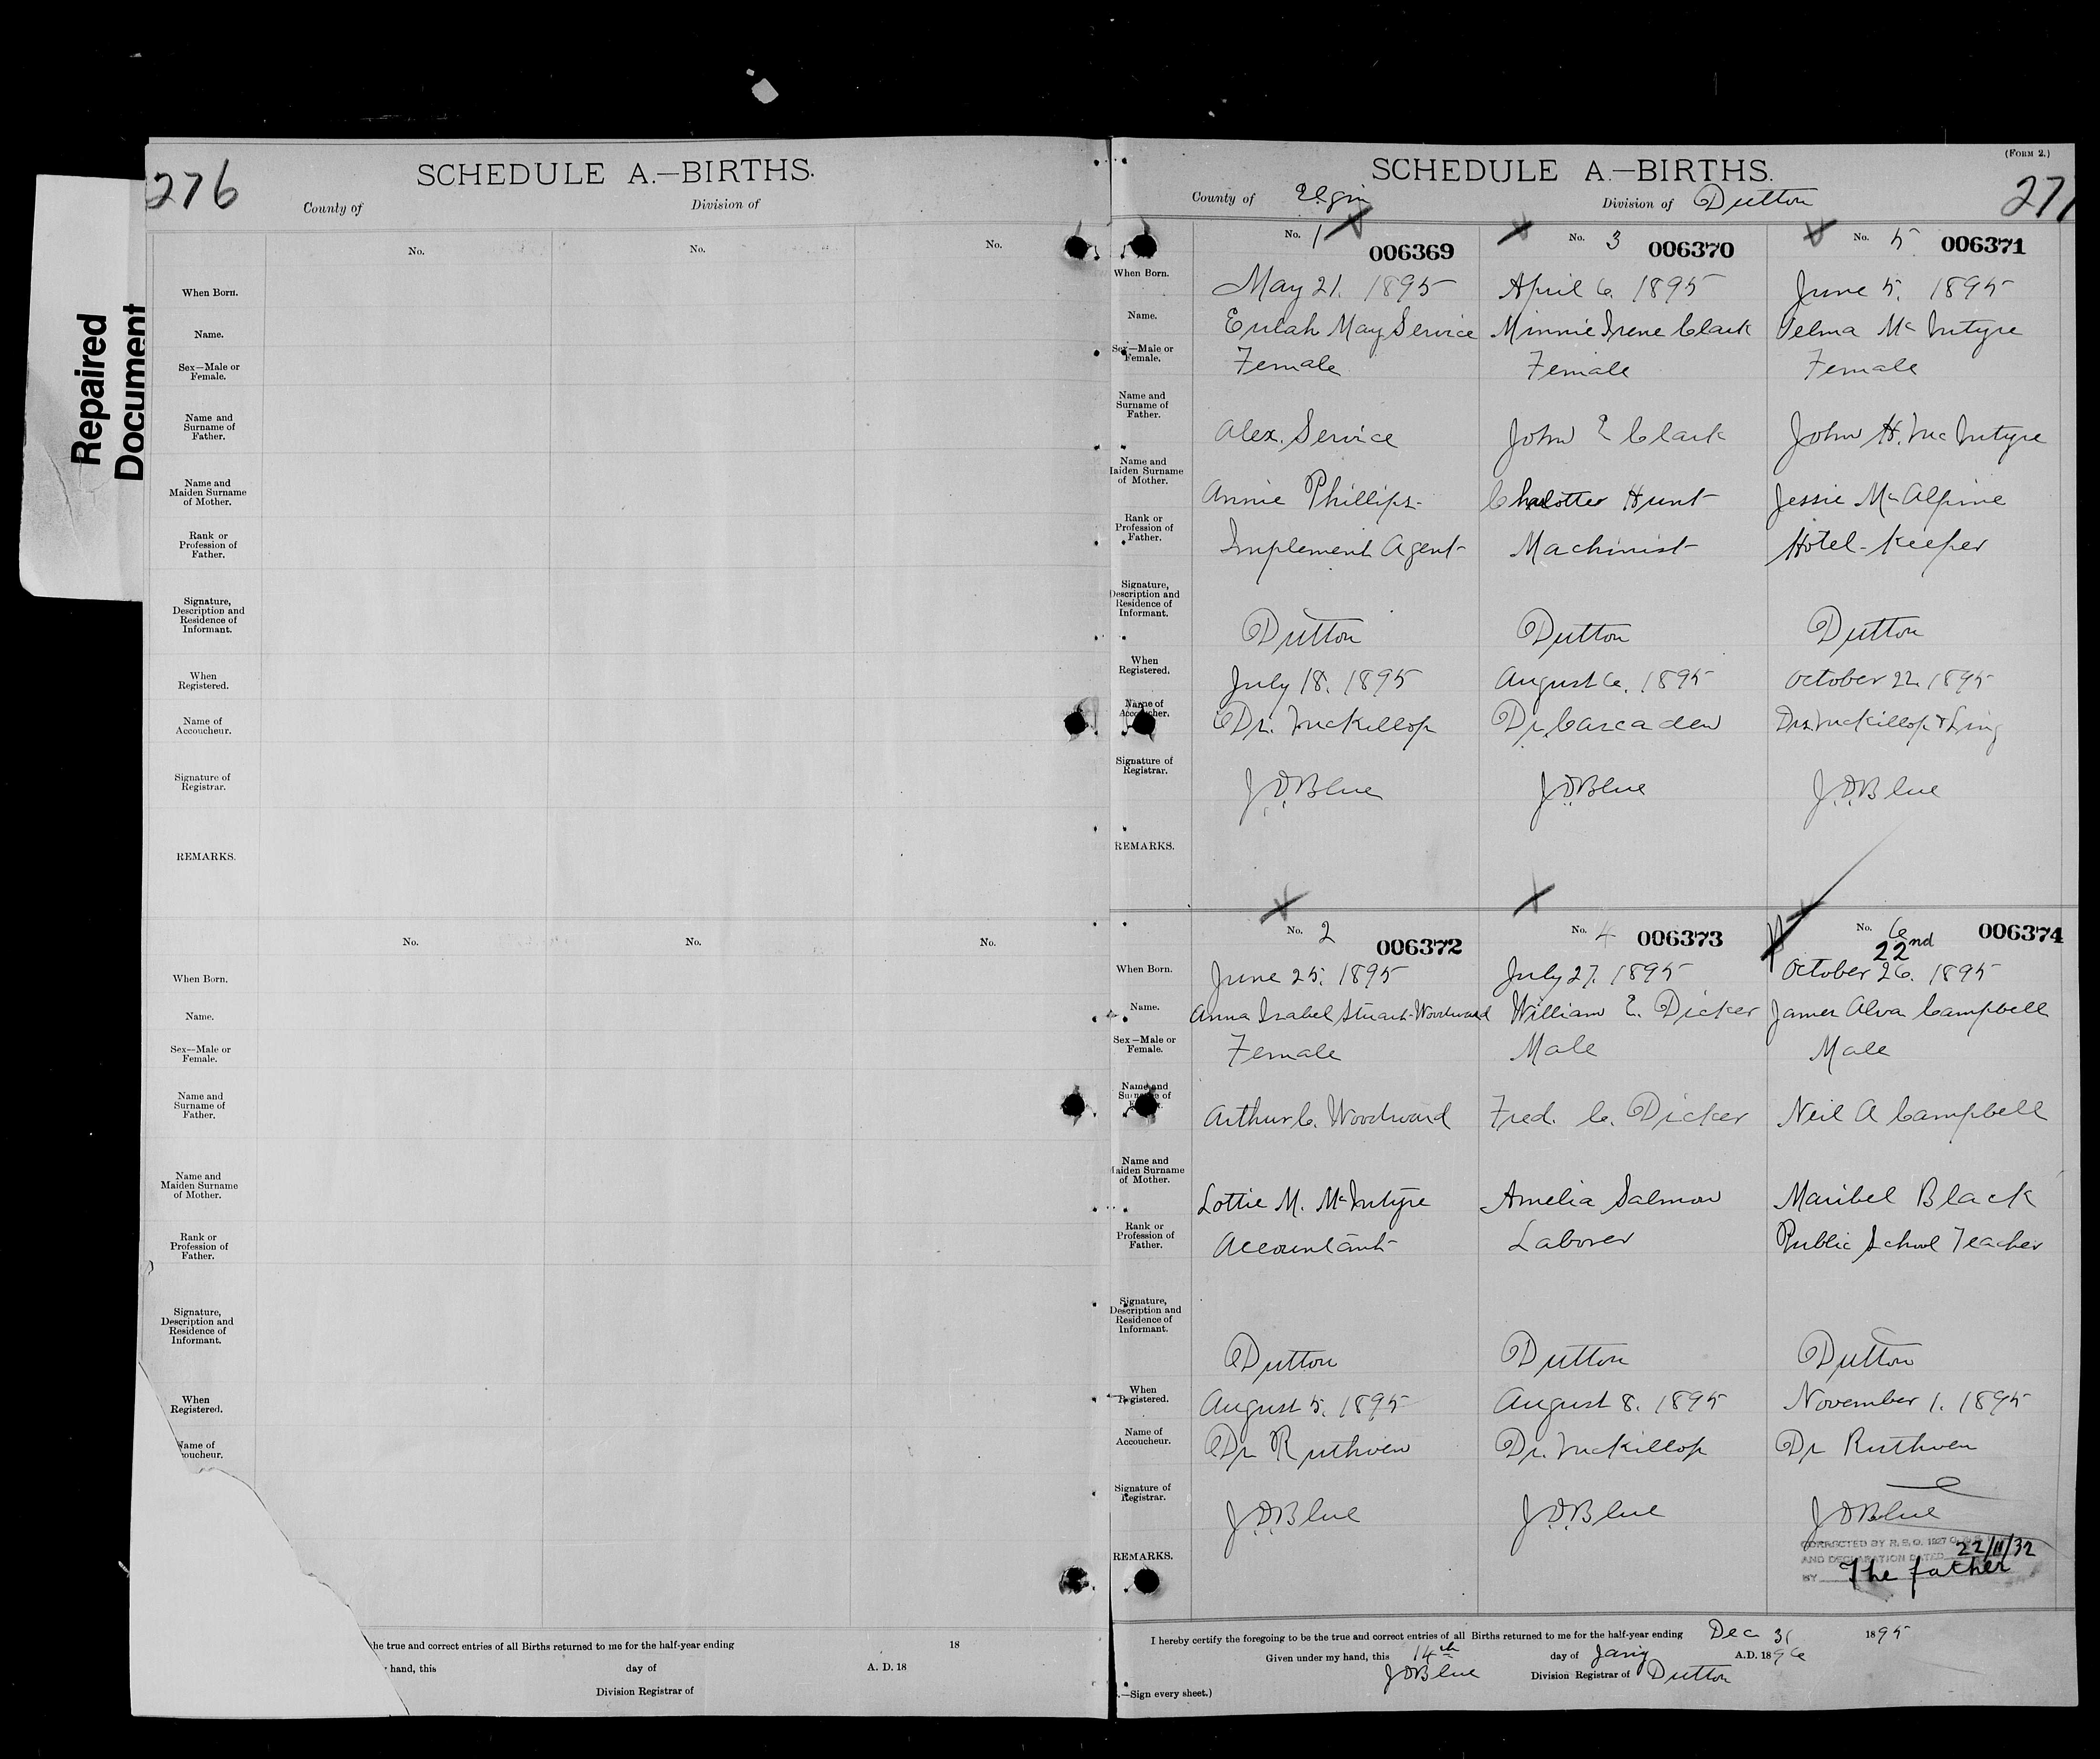 Repaired
Document
276
SCHEDULE A.—BIRTHS.
County of
Division of
No.
No.
No.
When Born.
Name.
Sex—Male or
Female.
Name and
Surname of
Father.
Name and
Maiden Surname
of Mother.
Rank or
Profession of
Father.
Signature,
Description and
Residence of
Informant.
When
Registered.
Name of
Accoucheur.
Signature of
Registrar.
REMARKS.
No.
No.
No.
When Born.
Name.
Sex—Male or
Female.
Name and
Surname of
Father.
Name and
Maiden Surname
of Mother.
Rank or
Profession of
Father.
Signature,
Description and
Residence of
Informant.
When
Registered.
Name of
oucheur.
the true and correct entries of all Births returned to me for the half-year ending 18
hand, this day of A. D. 18
Division Registrar of
(Form 2.)
SCHEDULE A.—BIRTHS.
277
County of Elgin Division of Dutton
No. 1 006369 No. 3 006370 No. 5 006371
When Born. May 21. 1895 April 6. 1895 June 5. 1895
Name. Eulah May Service Minnie Irene Clark Velma McIntyre
Sex—Male or
Female. Female Female Female
Name and
Surname of
Father. Alex. Service John E Clark John H. McIntyre
Name and
Maiden Surname
of Mother. Annie Phillips Charlotte Hunt Jessie McAlpine
Rank or
Profession of
Father. Implement Agent Machinist Hotel-Keeper
Signature,
Description and
Residence of
Informant. Dutton Dutton Dutton
When
Registered. July 18. 1895 August 6. 1895 October 22. 1895
Name of
Accoucher. Dr. McKillop Dr. Cascaden Drs. McKillop & Ling
Signature of
Registrar. J.D. Blue J.D. Blue J.D. Blue
REMARKS.
No. 2 006372 No. 4 006373 No. 6 006374
22nd
When Born. June 25. 1895 July 27. 1895 October 26. 1895
Name. Anna Isabel Stuart-Woodward William E. Dicker James Alva Campbell
Sex—Male or
Female. Female Male Male
Name and
Surname of
Arthur C. Woodward Fred. C. Dicker Neil A Campbell
Name and
Maiden Surname
of Mother. Lottie M. McIntyre Amelia Salmon Maribel Black
Rank or
Profession of
Father. Accountant Laborer Public School Teacher
Signature,
Description and
Residence of
Informant. Dutton Dutton Dutton
When
Registered. August 5. 1895 August 8. 1895 November 1. 1895
Name of
Accoucheur. Dr Ruthven Dr. McKillop Dr Ruthven
Signature of
Registrar. J.D. Blue J.D. Blue J D Blue
REMARKS.
CORRECTED BY R.S.O. 1927
AND DECLARATION DATED 22/11/32
BY The father
I hereby certify the foregoing to be the true and correct entries of all Births returned to me for the half-year ending Dec 31 1895
Given under my hand, this 14th day of Jany A.D. 1896
J D Blue Division Registrar of Dutton
—Sign every sheet.)